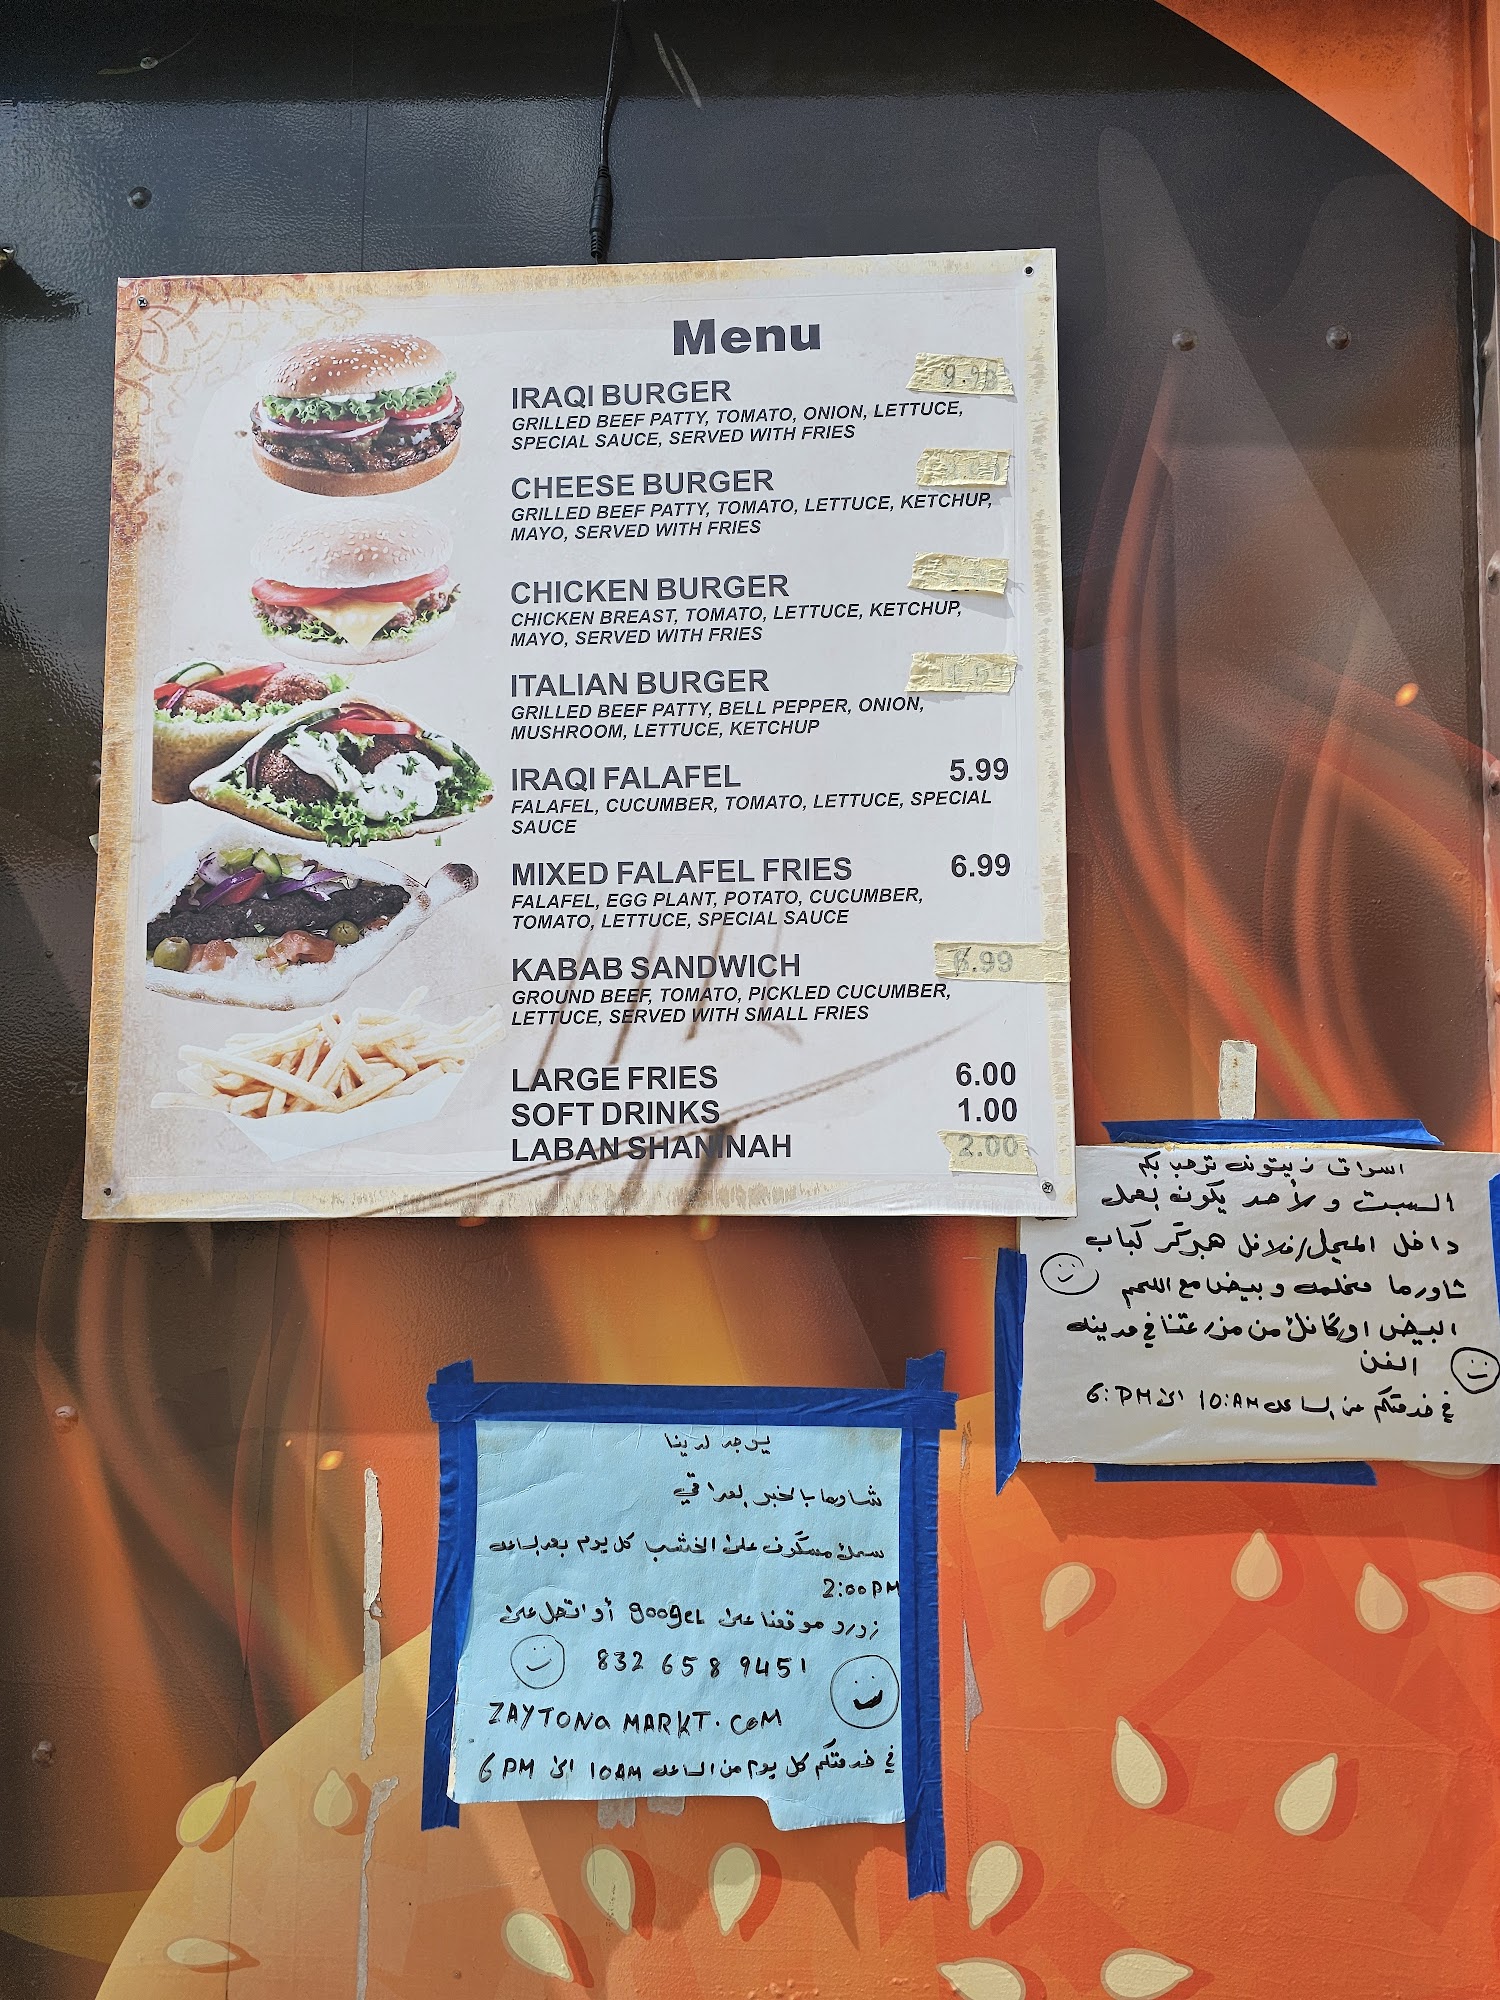 Menu
IRAQI BURGER 9.98
GRILLED BEEF PATTY, TOMATO, ONION, LETTUCE,
SPECIAL SAUCE, SERVED WITH FRIES
CHEESE BURGER
GRILLED BEEF PATTY, TOMATO, LETTUCE, KETCHUP,
MAYO, SERVED WITH FRIES
CHICKEN BURGER
CHICKEN BREAST, TOMATO, LETTUCE, KETCHUP,
MAYO, SERVED WITH FRIES
ITALIAN BURGER
GRILLED BEEF PATTY, BELL PEPPER, ONION,
MUSHROOM, LETTUCE, KETCHUP
IRAQI FALAFEL 5.99
FALAFEL, CUCUMBER, TOMATO, LETTUCE, SPECIAL
SAUCE
MIXED FALAFEL FRIES 6.99
FALAFEL, EGG PLANT, POTATO, CUCUMBER,
TOMATO, LETTUCE, SPECIAL SAUCE
KABAB SANDWICH 6.99
GROUND BEEF, TOMATO, PICKLED CUCUMBER,
LETTUCE, SERVED WITH SMALL FRIES
LARGE FRIES 6.00
SOFT DRINKS 1.00
LABAN SHANINAH 2.00
اسواق زيتونه ترحب بكم
السبت و لأحد يكون بعمل
داخل المحل/فلافل هبركر كباب
شاورما مخلمه و بيض مع اللحم
البيض اوركانك من مزرعتنا في مدينه
الفن
في خدمتكم من الساعه 10:AM الى 6:PM
يوجد لدينا
شاورما بالخبز العراقي
سمك مسكوف على الخشب كل يوم بعد الساعه
2:00PM
زورو موقعنا على googel أو اتصل على
832 658 9451
ZAYTONa MARKT.COM
في خدمتكم كل يوم من الساعه 10AM الى 6PM